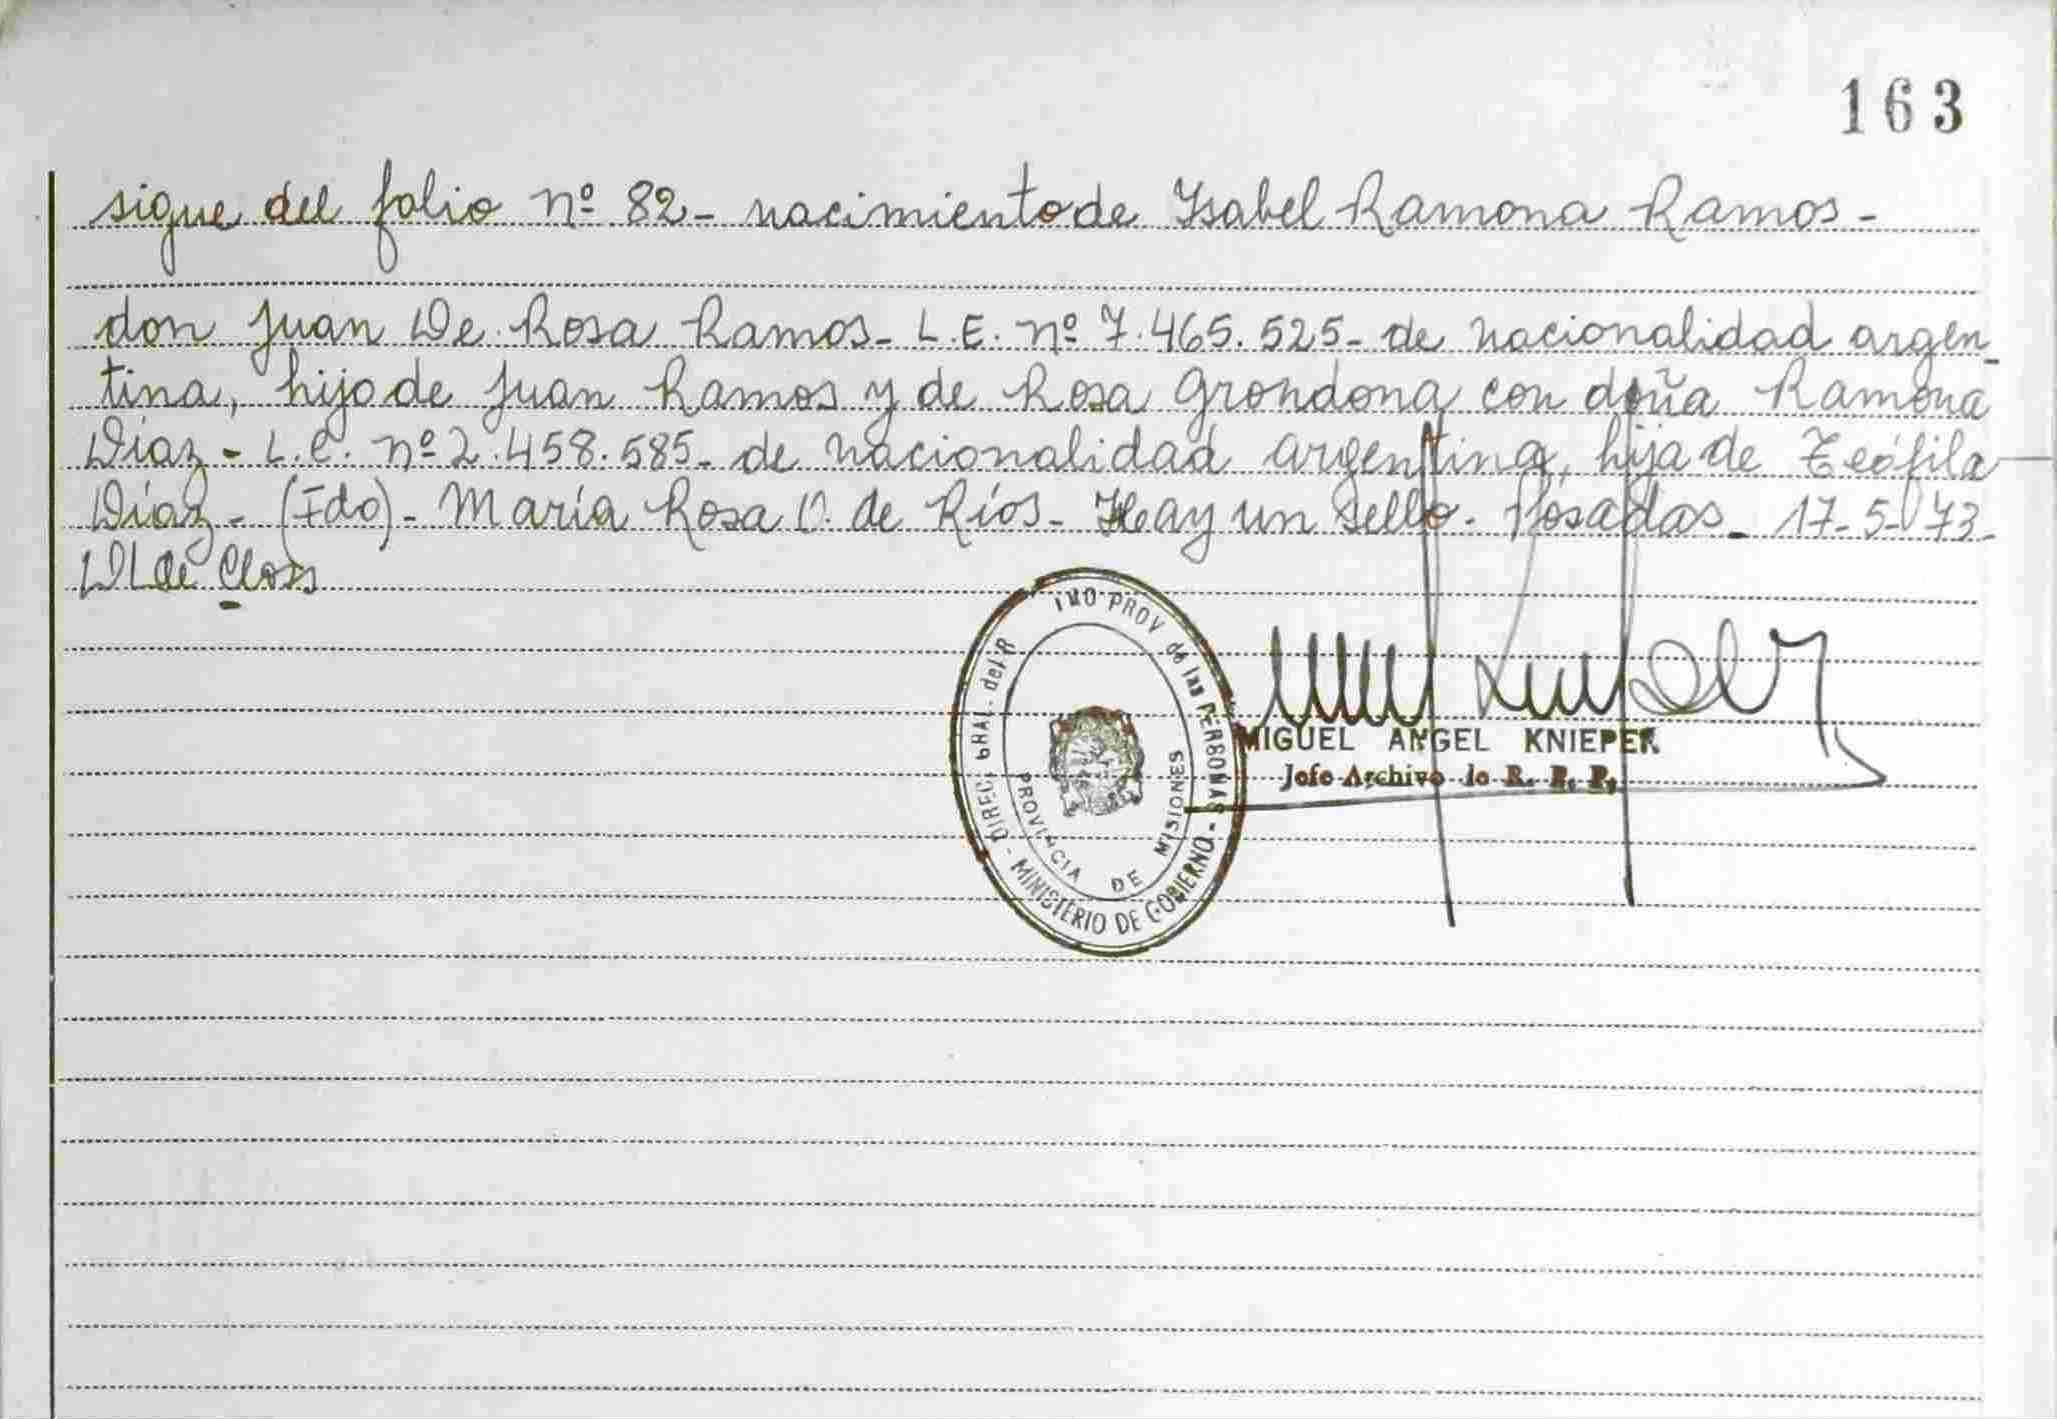 163
sigue del folio nº 82- nacimiento de Isabel Ramona Ramos-
don Juan De Rosa Ramos- L.E. nº 7.465.525- de nacionalidad argen-
tina, hijo de Juan Ramos y de Rosa Grondona con doña Ramona
Díaz- L.C. nº 2.458.585- de nacionalidad argentina, hija de Teófila
Díaz- (Fdo)- María Rosa V. de Ríos- Hay un sello- Posadas- 17-5-73-
de
MIGUEL ANGEL KNIEPER
Jefe Archivo de R. P. P.
DIREC. GRAL. del R PROV de las PERSONAS - MINISTERIO DE GOBIERNO -
PROVINCIA DE MISIONES